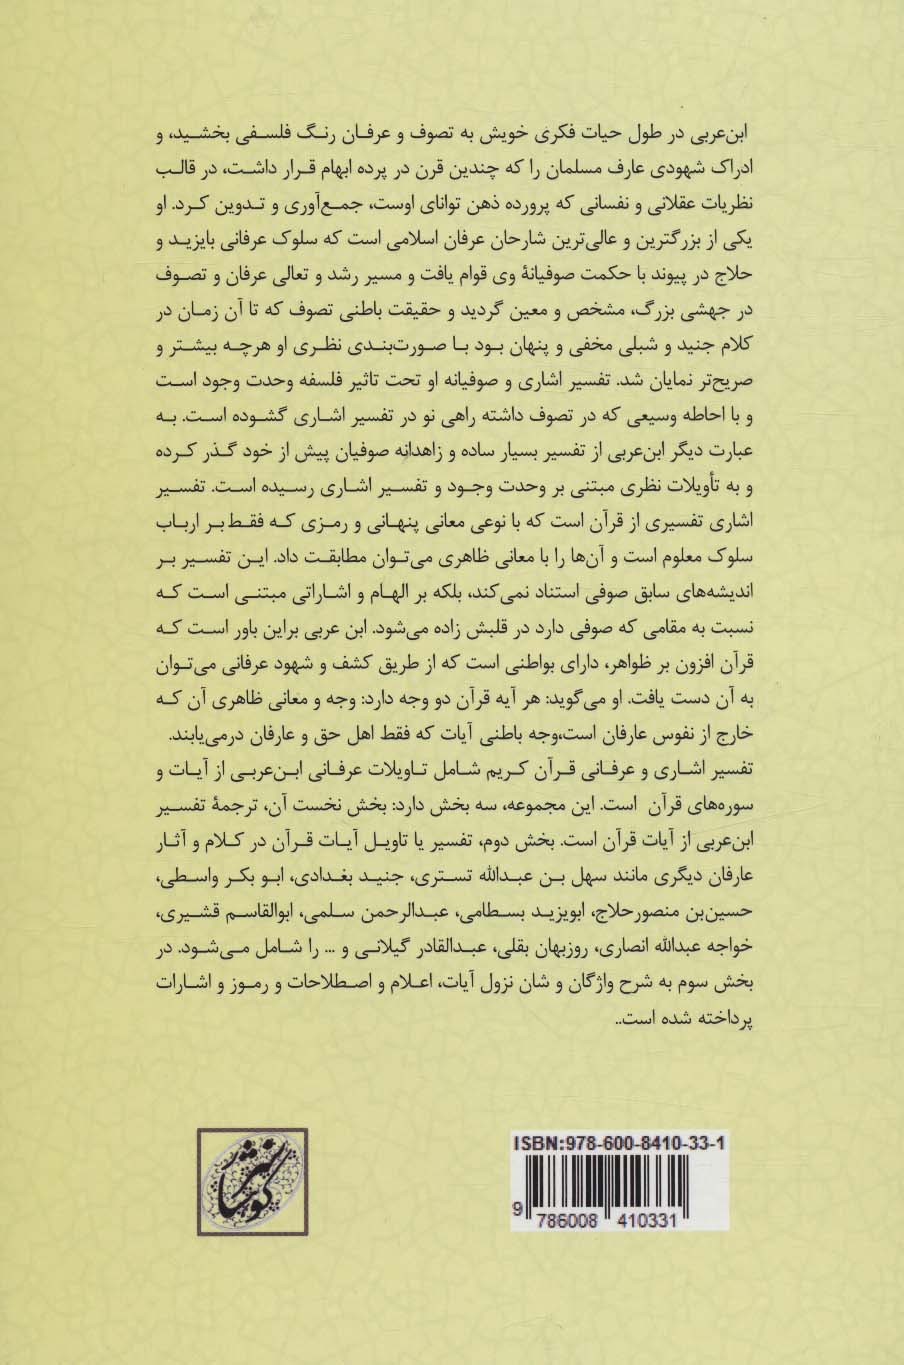 ابن‌عربی در طول حیات فکری خویش به تصوف و عرفان رنگ فلسفی بخشید، و
ادراک شهودی عارف مسلمان را که چندین قرن در پرده ابهام قرار داشت، در قالب
نظریات عقلانی و نفسانی که پرورده ذهن توانای اوست، جمع‌آوری و تدوین کرد. او
یکی از بزرگترین و عالی‌ترین شارحان عرفان اسلامی است که سلوک عرفانی بایزید و
حلاج در پیوند با حکمت صوفیانۀ وی قوام یافت و مسیر رشد و تعالی عرفان و تصوف
در جهشی بزرگ، مشخص و معین گردید و حقیقت باطنی تصوف که تا آن زمان در
کلام جنید و شبلی مخفی و پنهان بود با صورت‌بندی نظری او هرچه بیشتر و
صریح‌تر نمایان شد. تفسیر اشاری و صوفیانه او تحت تاثیر فلسفه وحدت وجود است
و با احاطه وسیعی که در تصوف داشته راهی نو در تفسیر اشاری گشوده است. به
عبارت دیگر ابن‌عربی از تفسیر بسیار ساده و زاهدانه صوفیان پیش از خود گذر کرده
و به تأویلات نظری مبتنی بر وحدت وجود و تفسیر اشاری رسیده است. تفسیر
اشاری تفسیری از قرآن است که با نوعی معانی پنهانی و رمزی که فقط بر ارباب
سلوک معلوم است و آن‌ها را با معانی ظاهری می‌توان مطابقت داد. این تفسیر بر
اندیشه‌های سابق صوفی استناد نمی‌کند، بلکه بر الهام و اشاراتی مبتنی است که
نسبت به مقامی که صوفی دارد در قلبش زاده می‌شود. ابن عربی براین باور است که
قرآن افزون بر ظواهر، دارای بواطنی است که از طریق کشف و شهود عرفانی می‌توان
به آن دست یافت. او می‌گوید: هر آیه قرآن دو وجه دارد: وجه و معانی ظاهری آن که
خارج از نفوس عارفان است،وجه باطنی آیات که فقط اهل حق و عارفان درمی‌یابند.
تفسیر اشاری و عرفانی قرآن کریم شامل تاویلات عرفانی ابن‌عربی از آیات و
سوره‌های قرآن است. این مجموعه، سه بخش دارد: بخش نخست آن، ترجمۀ تفسیر
ابن‌عربی از آیات قرآن است. بخش دوم، تفسیر یا تاویل آیات قرآن در کلام و آثار
عارفان دیگری مانند سهل بن عبدالله تستری، جنید بغدادی، ابو بکر واسطی،
حسین‌بن منصورحلاج، ابویزید بسطامی، عبدالرحمن سلمی، ابوالقاسم قشیری،
خواجه عبدالله انصاری، روزبهان بقلی، عبدالقادر گیلانی و ... را شامل می‌شود. در
بخش سوم به شرح واژگان و شان نزول آیات، اعلام و اصطلاحات و رموز و اشارات
پرداخته شده است..
ISBN:978-600-8410-33-1
9 786008 410331